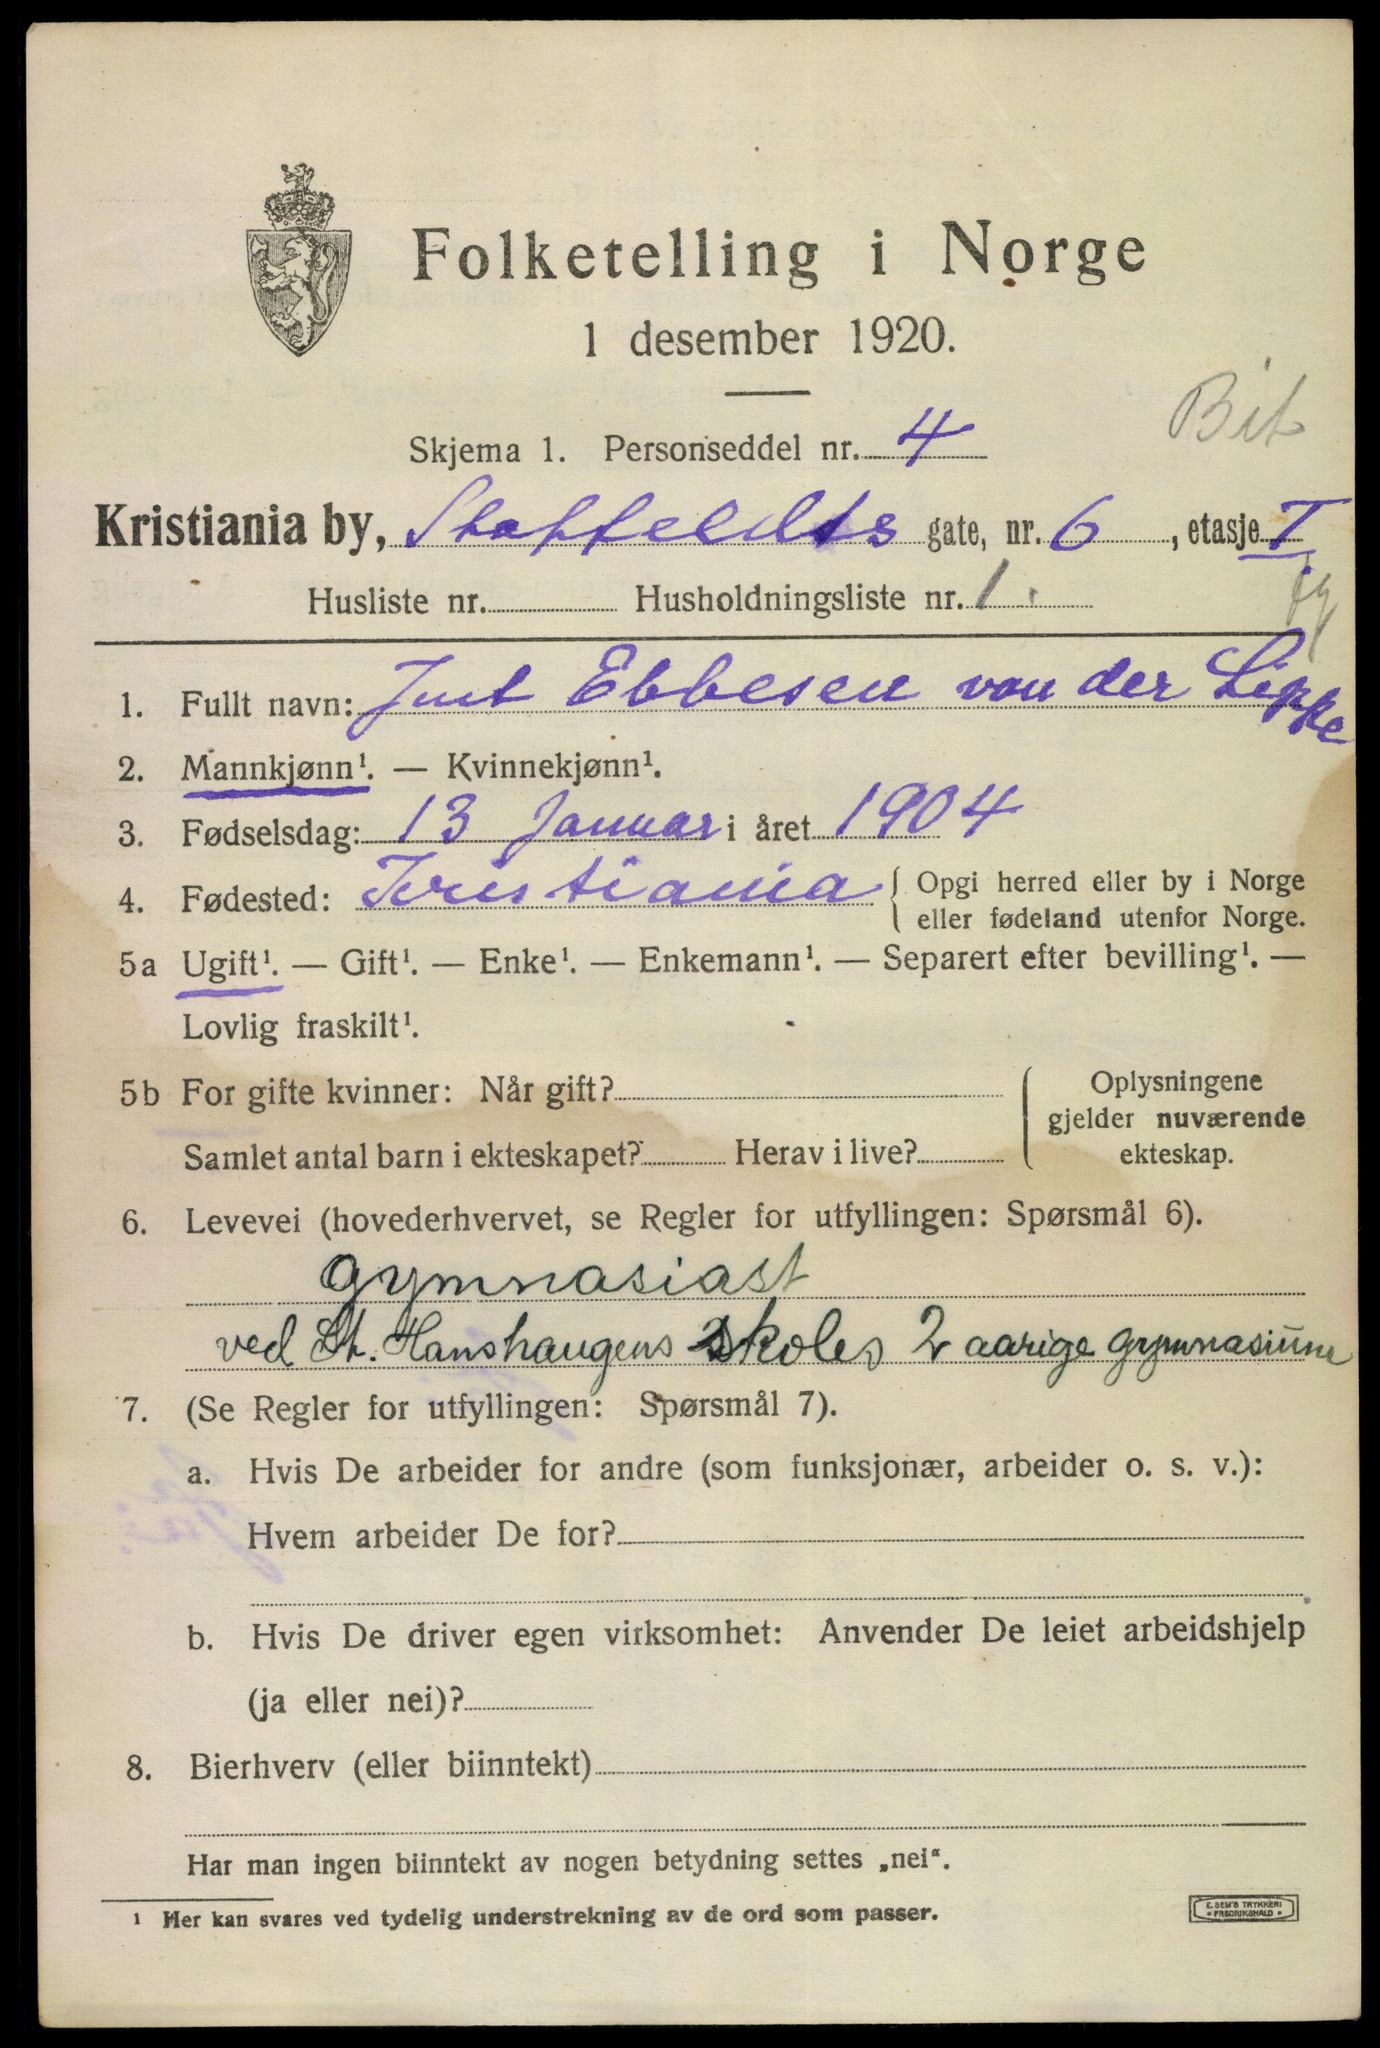 Folketelling i Norge
1 desember 1920.
Bit
Skjema 1. Personseddel nr. 4
Kristiania by, Stoffeldts gate, nr. 6, etasje I
Husliste nr. Husholdningsliste nr. 1.
1. Fullt navn: Just Ebbesen von der Lippe
2. Mannkjønn¹. — Kvinnekjønn¹.
3. Fødselsdag: 13 Januar i året 1904
4. Fødested: Kristiania { Opgi herred eller by i Norge
eller fødeland utenfor Norge.
5a Ugift¹. — Gift¹. — Enke¹. — Enkemann¹. — Separert efter bevilling¹. —
Lovlig fraskilt¹.
5b For gifte kvinner: Når gift?
Samlet antal barn i ekteskapet? Herav i live?
{ Oplysningene
gjelder nuværende
ekteskap.
6. Levevei (hovederhvervet, se Regler for utfyllingen: Spørsmål 6).
gymnasiast
ved St. Hanshaugens skoles 2 aarige gymnasium
7. (Se Regler for utfyllingen: Spørsmål 7).
a. Hvis De arbeider for andre (som funksjonær, arbeider o. s. v.):
Hvem arbeider De for?
b. Hvis De driver egen virksomhet: Anvender De leiet arbeidshjelp
(ja eller nei)?
8. Bierhverv (eller biinntekt)
Har man ingen biinntekt av nogen betydning settes „nei“.
¹ Her kan svares ved tydelig understrekning av de ord som passer.
E. SEM'S TRYKKERI
FREDRIKSHALD